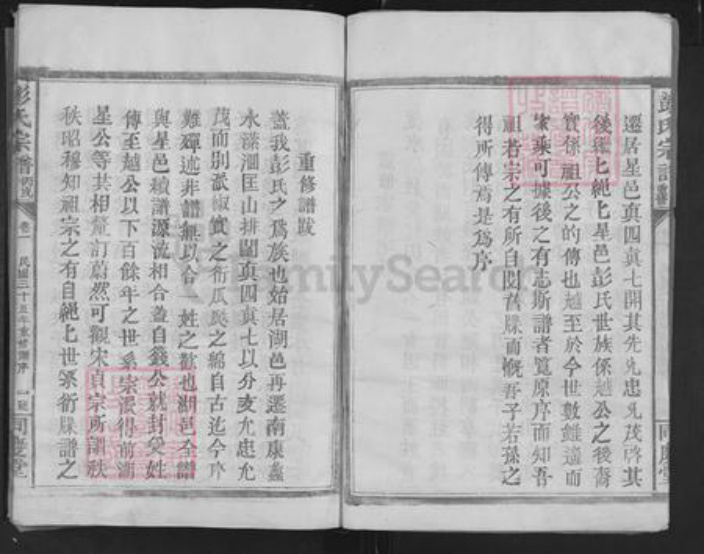 彭氏宗譜
同慶堂
遷居星邑真四真七開其先允忠允茂啓其
後繩繩星邑彭氏世族係越公之後裔
實係祖公之的傳也越至於今世數雖遙而
家乘可據後之有志斯譜者覽原序而知吾
祖若宗之有所自閱舊牒而慨吾子若孫之
得所傳焉是為序
重修譜跋
蓋我彭氏之為族也始居湖邑再遷南康蠡
水濚洄匡山排闥真四真七以分支允忠允
茂而別派椒實之衍瓜瓞之綿自古迄今序
難殫述非譜無以合一姓之歡也湖邑全譜
與星邑續譜源流相合蓋自錢公就封受姓
傳至越公以下百餘年之世系宗派得前湖
星公等共相釐訂蔚然可觀宋貞宗所謂秩
秩昭穆知祖宗之有自繩繩世系衍牒譜之
彭氏宗譜
卷一
民國三十五年重修譜序
一
同慶堂
FamilySearch